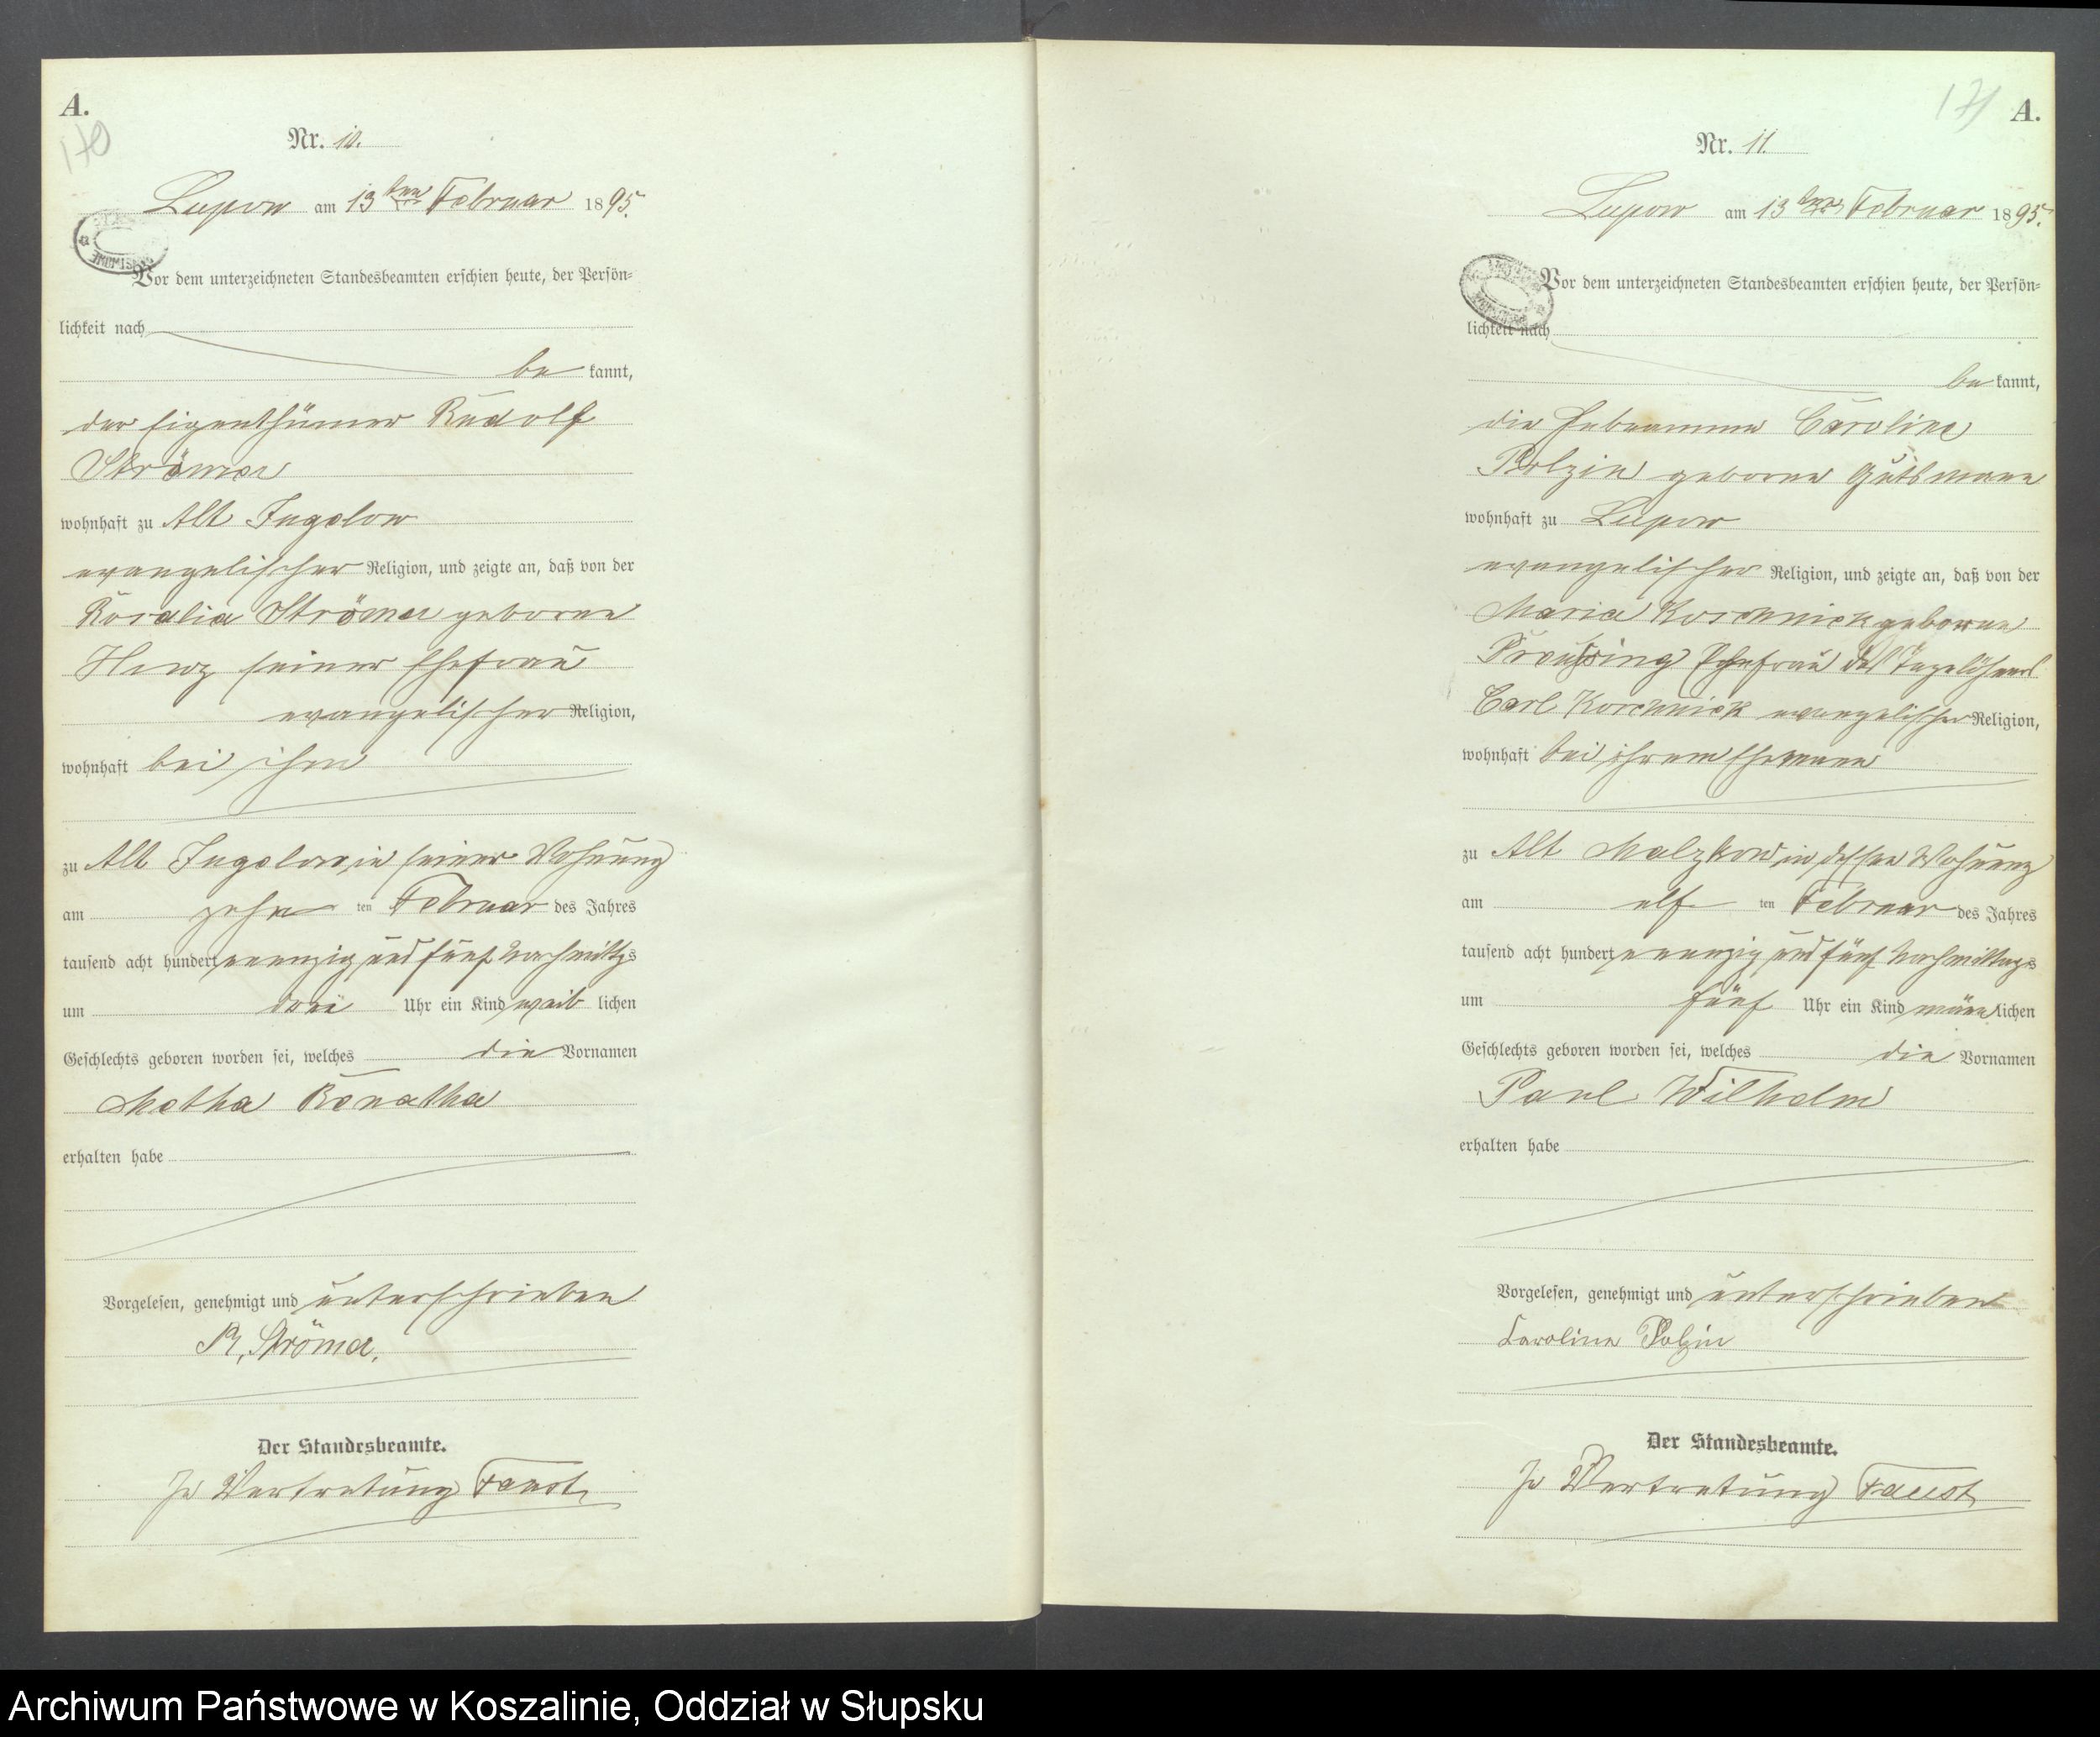 A.
170
Nr. 10.
Lupow am 13ten Februar 1895.
Vor dem unterzeichneten Standesbeamten erschien heute, der Persön-
lichkeit nach
be kannt,
der Eigenthümer Rudolf
Strömer
wohnhaft zu Alt Jugelow
evangelischer Religion, und zeigte an, daß von der
Rosalia Strömer geborne
seiner Ehefrau
evangelischer Religion,
wohnhaft bei ihm
zu Alt Jugelow, in seiner Wohnung
am zehn ten Februar des Jahres
tausend acht hundert neunzig und fünf Nachmittgs
um drei Uhr ein Kind weib lichen
Geschlechts geboren worden sei, welches die Vornamen
Metha Renatha
erhalten habe
Vorgelesen, genehmigt und unterschrieben
R. Strömer.
Der Standesbeamte.
In Vertretung Faust
171
A.
Nr. 11.
Lupow am 13ten Februar 1895.
Vor dem unterzeichneten Standesbeamten erschien heute, der Persön-
lichkeit nach
be kannt,
die Hebeamme Caroline
Polzin geborne Gutsmann
wohnhaft zu Lupow
evangelischer Religion, und zeigte an, daß von der
Maria Koschnick geborne
Ehefrau des Tagelöhners
Carl Koschnick evangelischer Religion,
wohnhaft bei ihrem Ehemann
zu Alt Malzkow, in dessen Wohnung
am elf ten Februar des Jahres
tausend acht hundert neunzig und fünf Nachmittags
um fünf Uhr ein Kind männ lichen
Geschlechts geboren worden sei, welches die Vornamen
Paul Wilhelm
erhalten habe
Vorgelesen, genehmigt und unterschrieben
Caroline Polzin
Der Standesbeamte.
In Vertretung Faust
Archiwum Państwowe w Koszalinie, Oddział w Słupsku